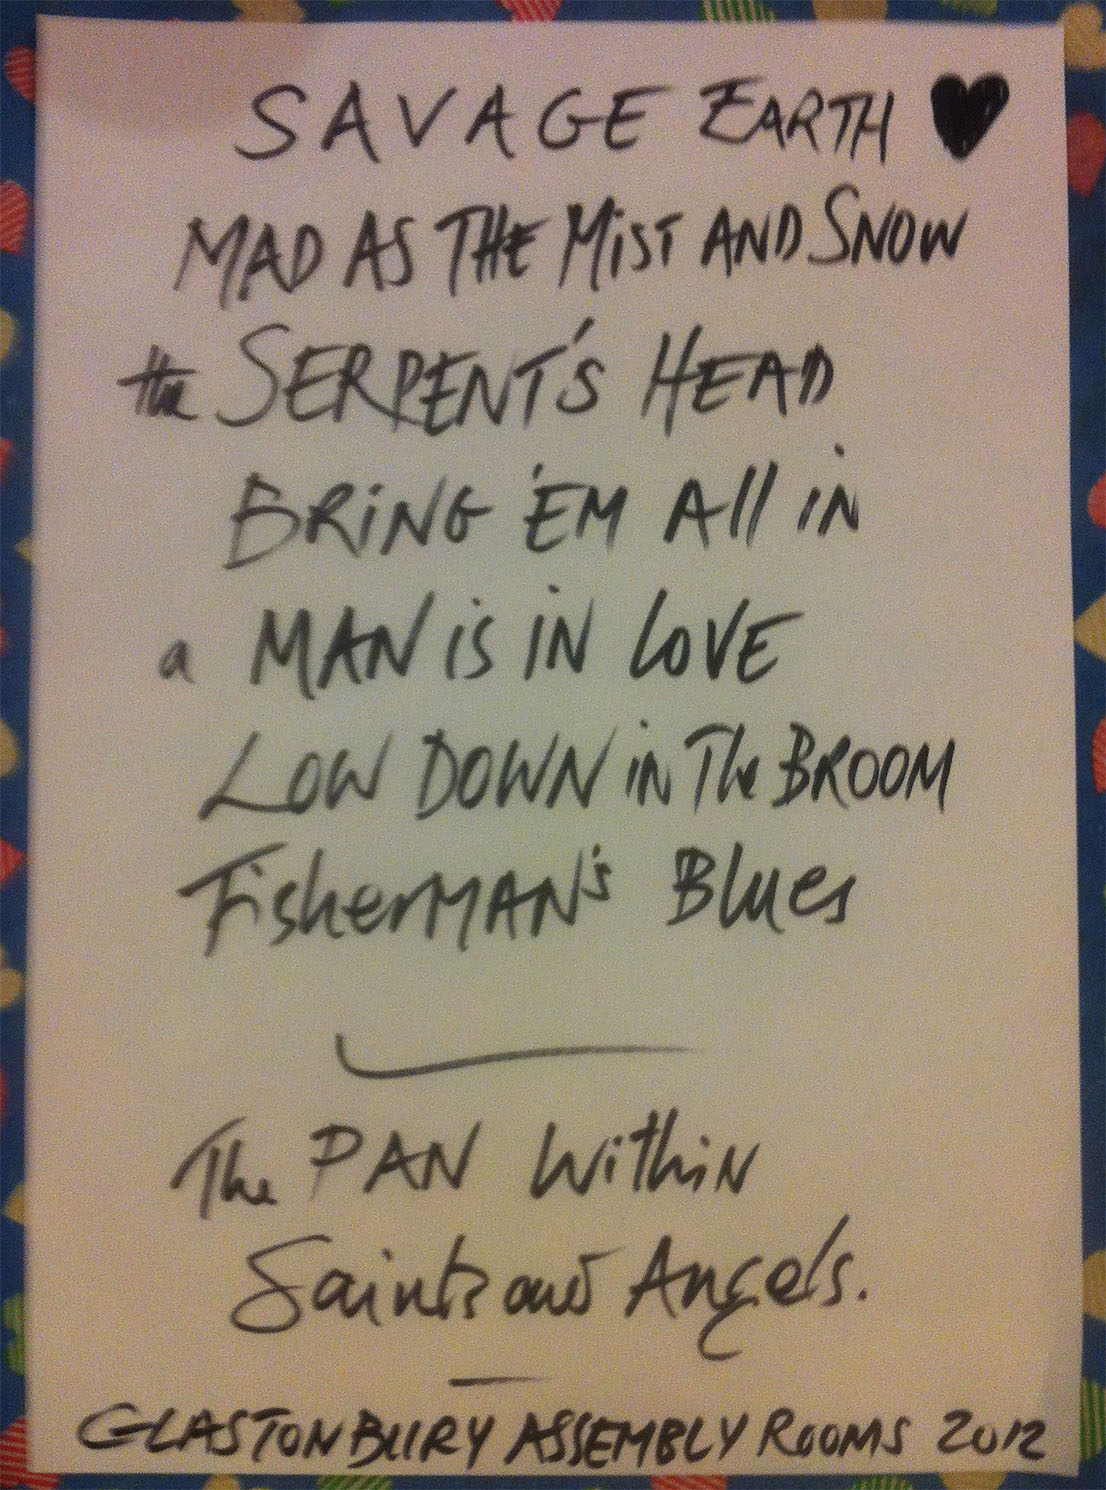 SAVAGE EARTH ♥
MAD AS THE MiST AND SNOW
the SERPENT'S HEAD
BRiNG 'EM All iN
a MAN iS iN LOVE
LOW DOWN in The BROOM
FisherMAN's Blues
The PAN WithiN
Saints and Angels.
GLASTONBURY ASSEMBLY ROOMS 2012